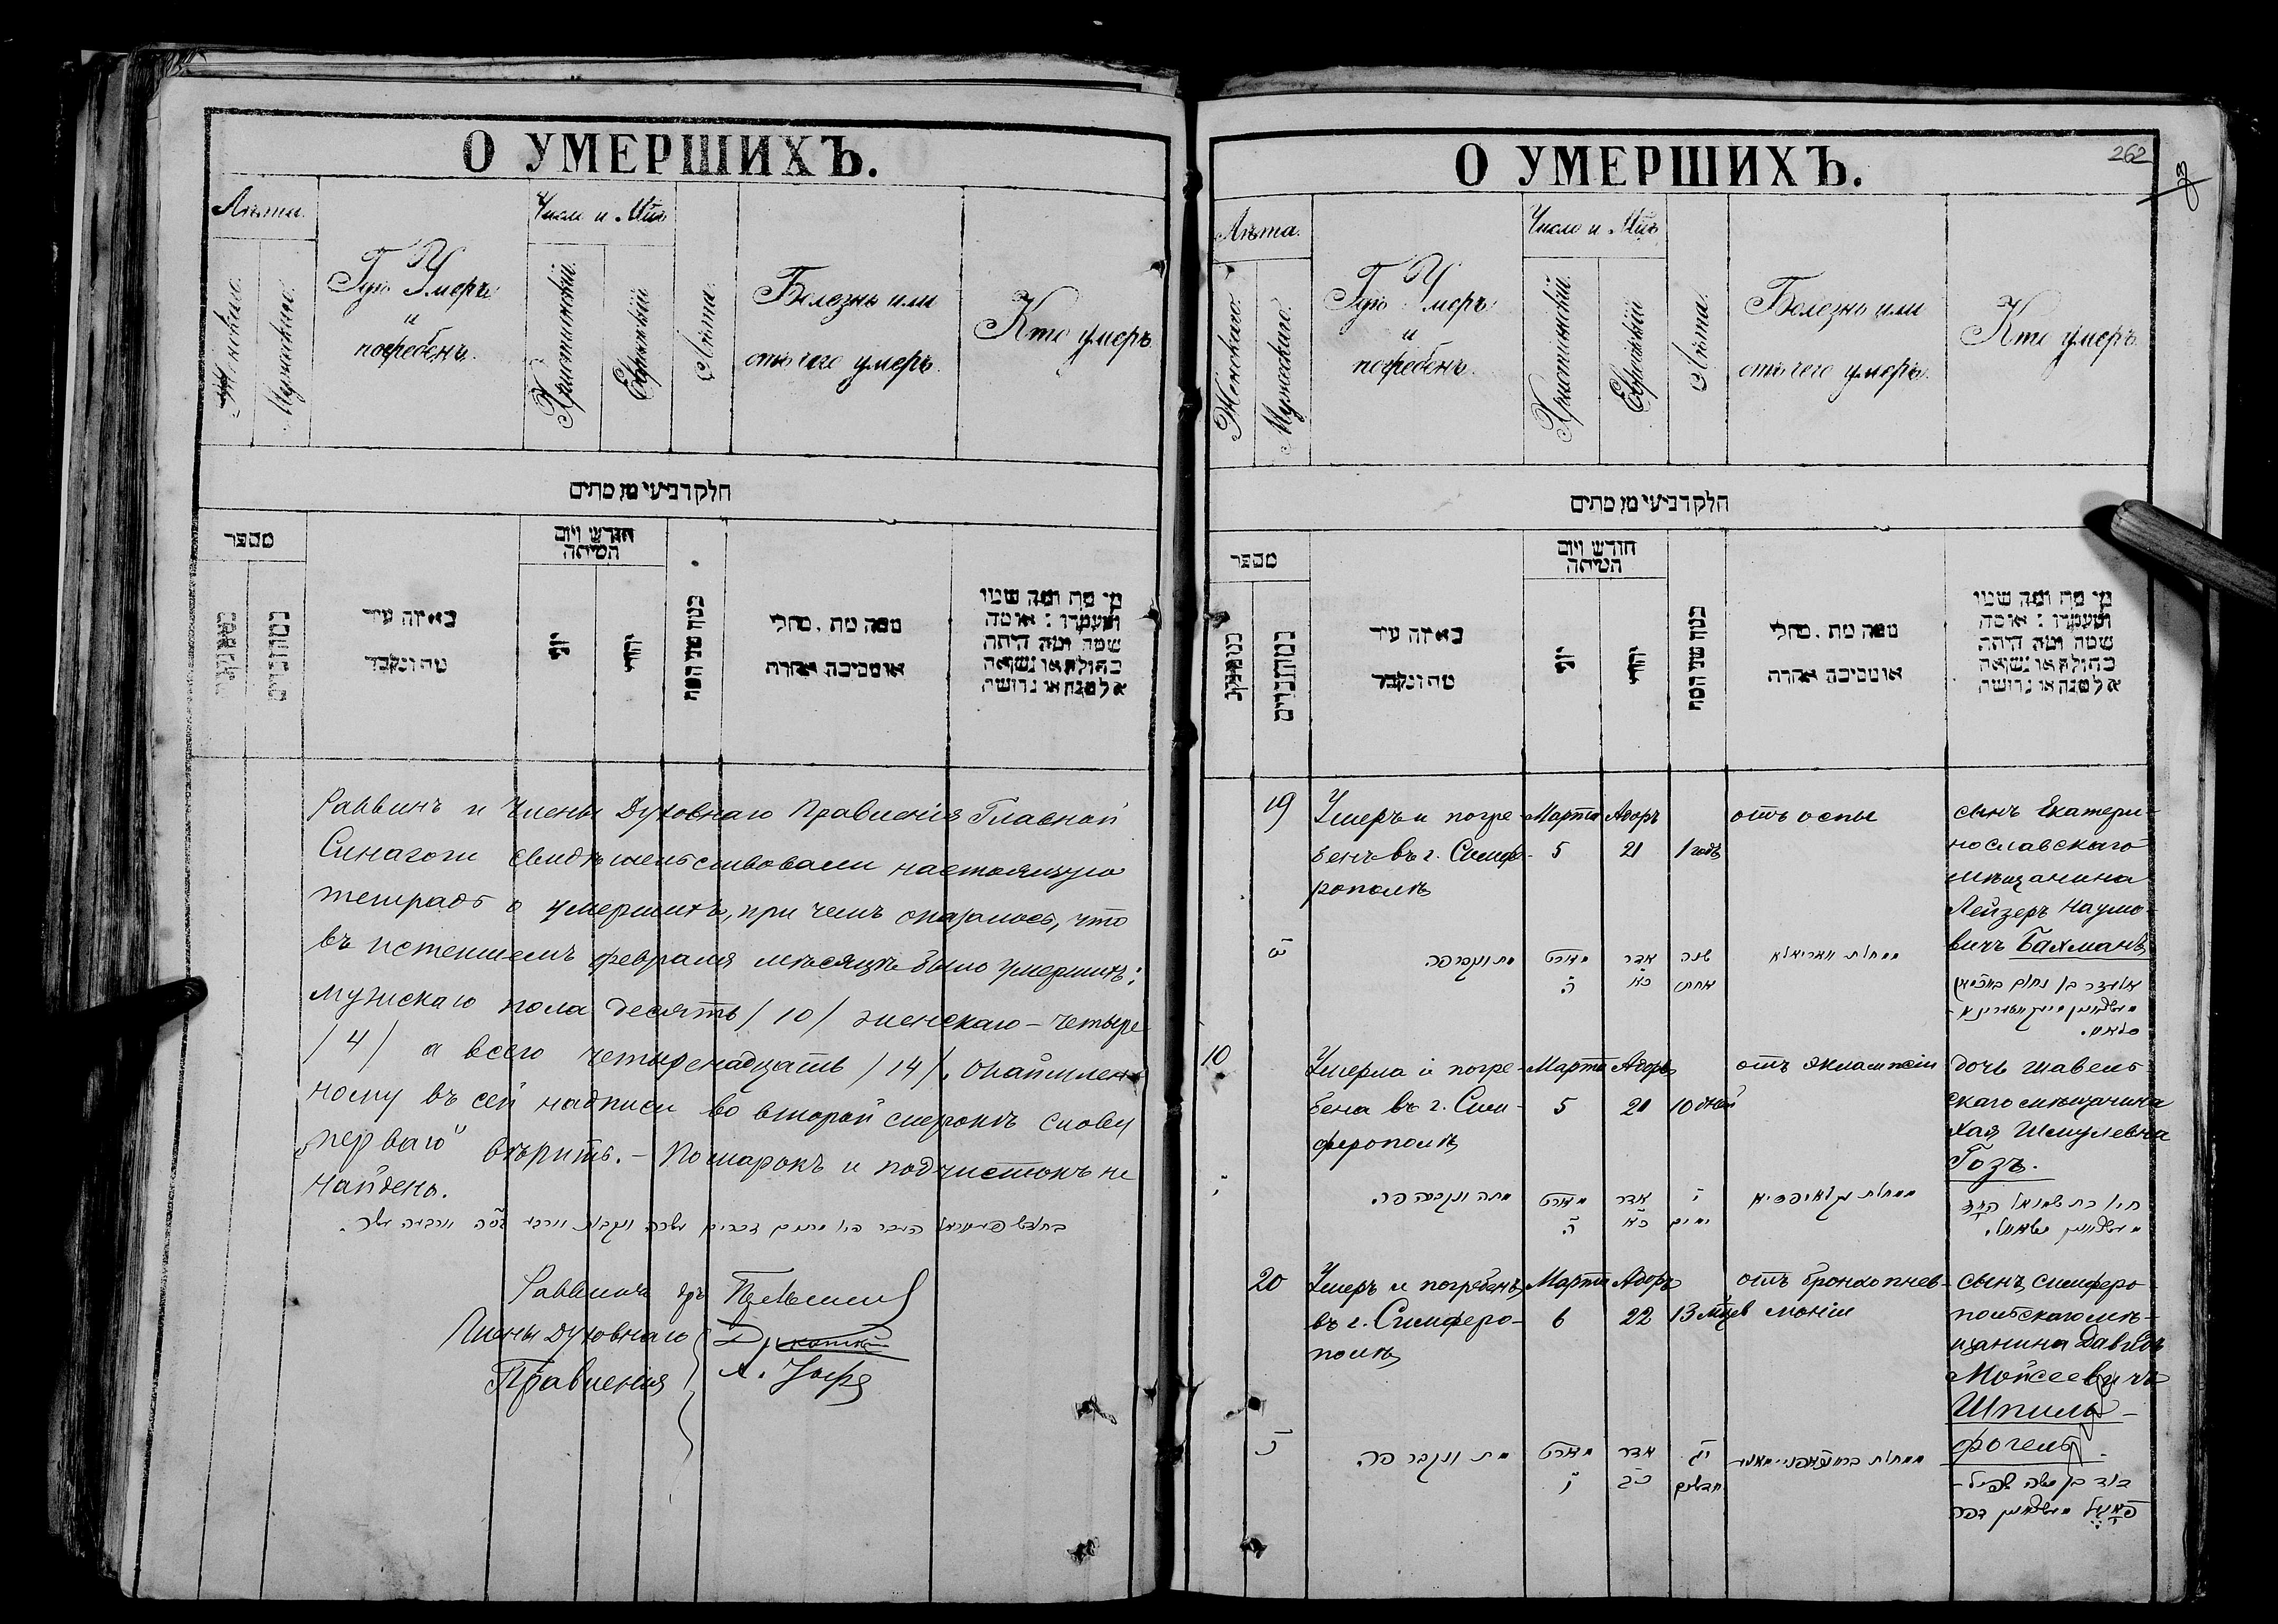 О УМЕРШИХЪ.
Лѣта.
Женскаго.
Мужескаго.
Гдѣ Умеръ
и
погребенъ.
Число и Мцъ
Христіянскій.
Еврейскій
Лѣта.
Болезнь или
отъ чего умеръ.
Кто умеръ
חלק רביעי מן מתים
מספר
באיזה עיר
מת ונקבר
חודש ויום
המיתה
יוני
יהודי
ממה מת . מחלי
או מסיבה אחרת
מי מת ומה שמו
ומעמדו : או מה
שמה ומה היתה
בתולה או נשואה
אלמנה או גרושה
Раввинъ и Члены Духовнаго Правленія Главной
Синагоги свидѣтельствовали настоящую
тетрадь о умершихъ, при чемъ оказалось, что
въ истекшемъ февралѣ мѣсяцѣ было умершихъ:
мужскаго пола десять / 10 / женскаго – четыре
/ 4 / а всего четырнадцать / 14 /.
ному въ сей надписи во второй строкѣ слову
„перваго" вѣрить. – Помарокъ и подчистокъ не
найдено.
Раввинъ др
Члены Духовнаго
Правленія
О УМЕРШИХЪ.
262
Лѣта.
Женскаго.
Мужескаго.
Гдѣ Умеръ
и
погребенъ.
Число и Мцъ
Христіянскій.
Еврейскій
Лѣта.
Болезнь или
отъ чего умеръ.
Кто умеръ
חלק רביעי מן מתים
מספר
באיזה עיר
מת ונקבר
חודש ויום
המיתה
יוני
יהודי
ממה מת . מחלי
או מסיבה אחרת
מי מת ומה שמו
ומעמדו : או מה
שמה ומה היתה
בתולה או נשואה
אלמנה או גרושה
19
Умеръ и погре-
бенъ въ г. Симфе-
рополѣ
Марта
5
Адоръ
21
1 годъ
отъ оспы
сынъ Екатери-
нославскаго
мѣщанина
Лейзеръ Наумо-
вичъ Бахманъ
יט
מת ונקבר פה
מארט
ה
אדר
כא
שנה
אחת
אליעזר בן נחום באכמאן
10
Умерла и погре-
бена въ г. Сим-
ферополѣ
Марта
5
Адоръ
21
10 дней
отъ эклампсіи
дочь шавель-
скаго мѣщанина
Хая Шмулевна
Гозъ.
י
מתה ונקברה פה.
מארט
ה
אדר
כא
י
ימים
חיה בת שמואל
20
Умеръ и погребенъ
въ г. Симферо-
полѣ
Марта
6
Адоръ
22
13 мцев
отъ бронхопнев-
моніи
сынъ симферо-
польскаго мѣ-
щанина Давидъ
Мойсеевичъ
Шпиль-
фогель
כ
מת ונקבר פה.
מארט
ו
אדר
כב
יג
חדשים
דוד בן משה שפיל-